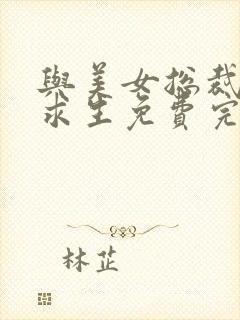 與美女總裁
求生免費完
林芷